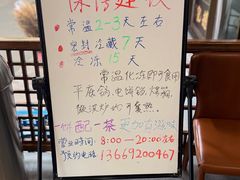 保存建议
常温 2-3天左右
密封冷藏 7天
冷冻 15天
常温化冻即可食用
平底锅、电饼铛、烤箱
饼配一茶 更加有滋味
营业时间: 8:00—20:00左右
预约电话 13669200467